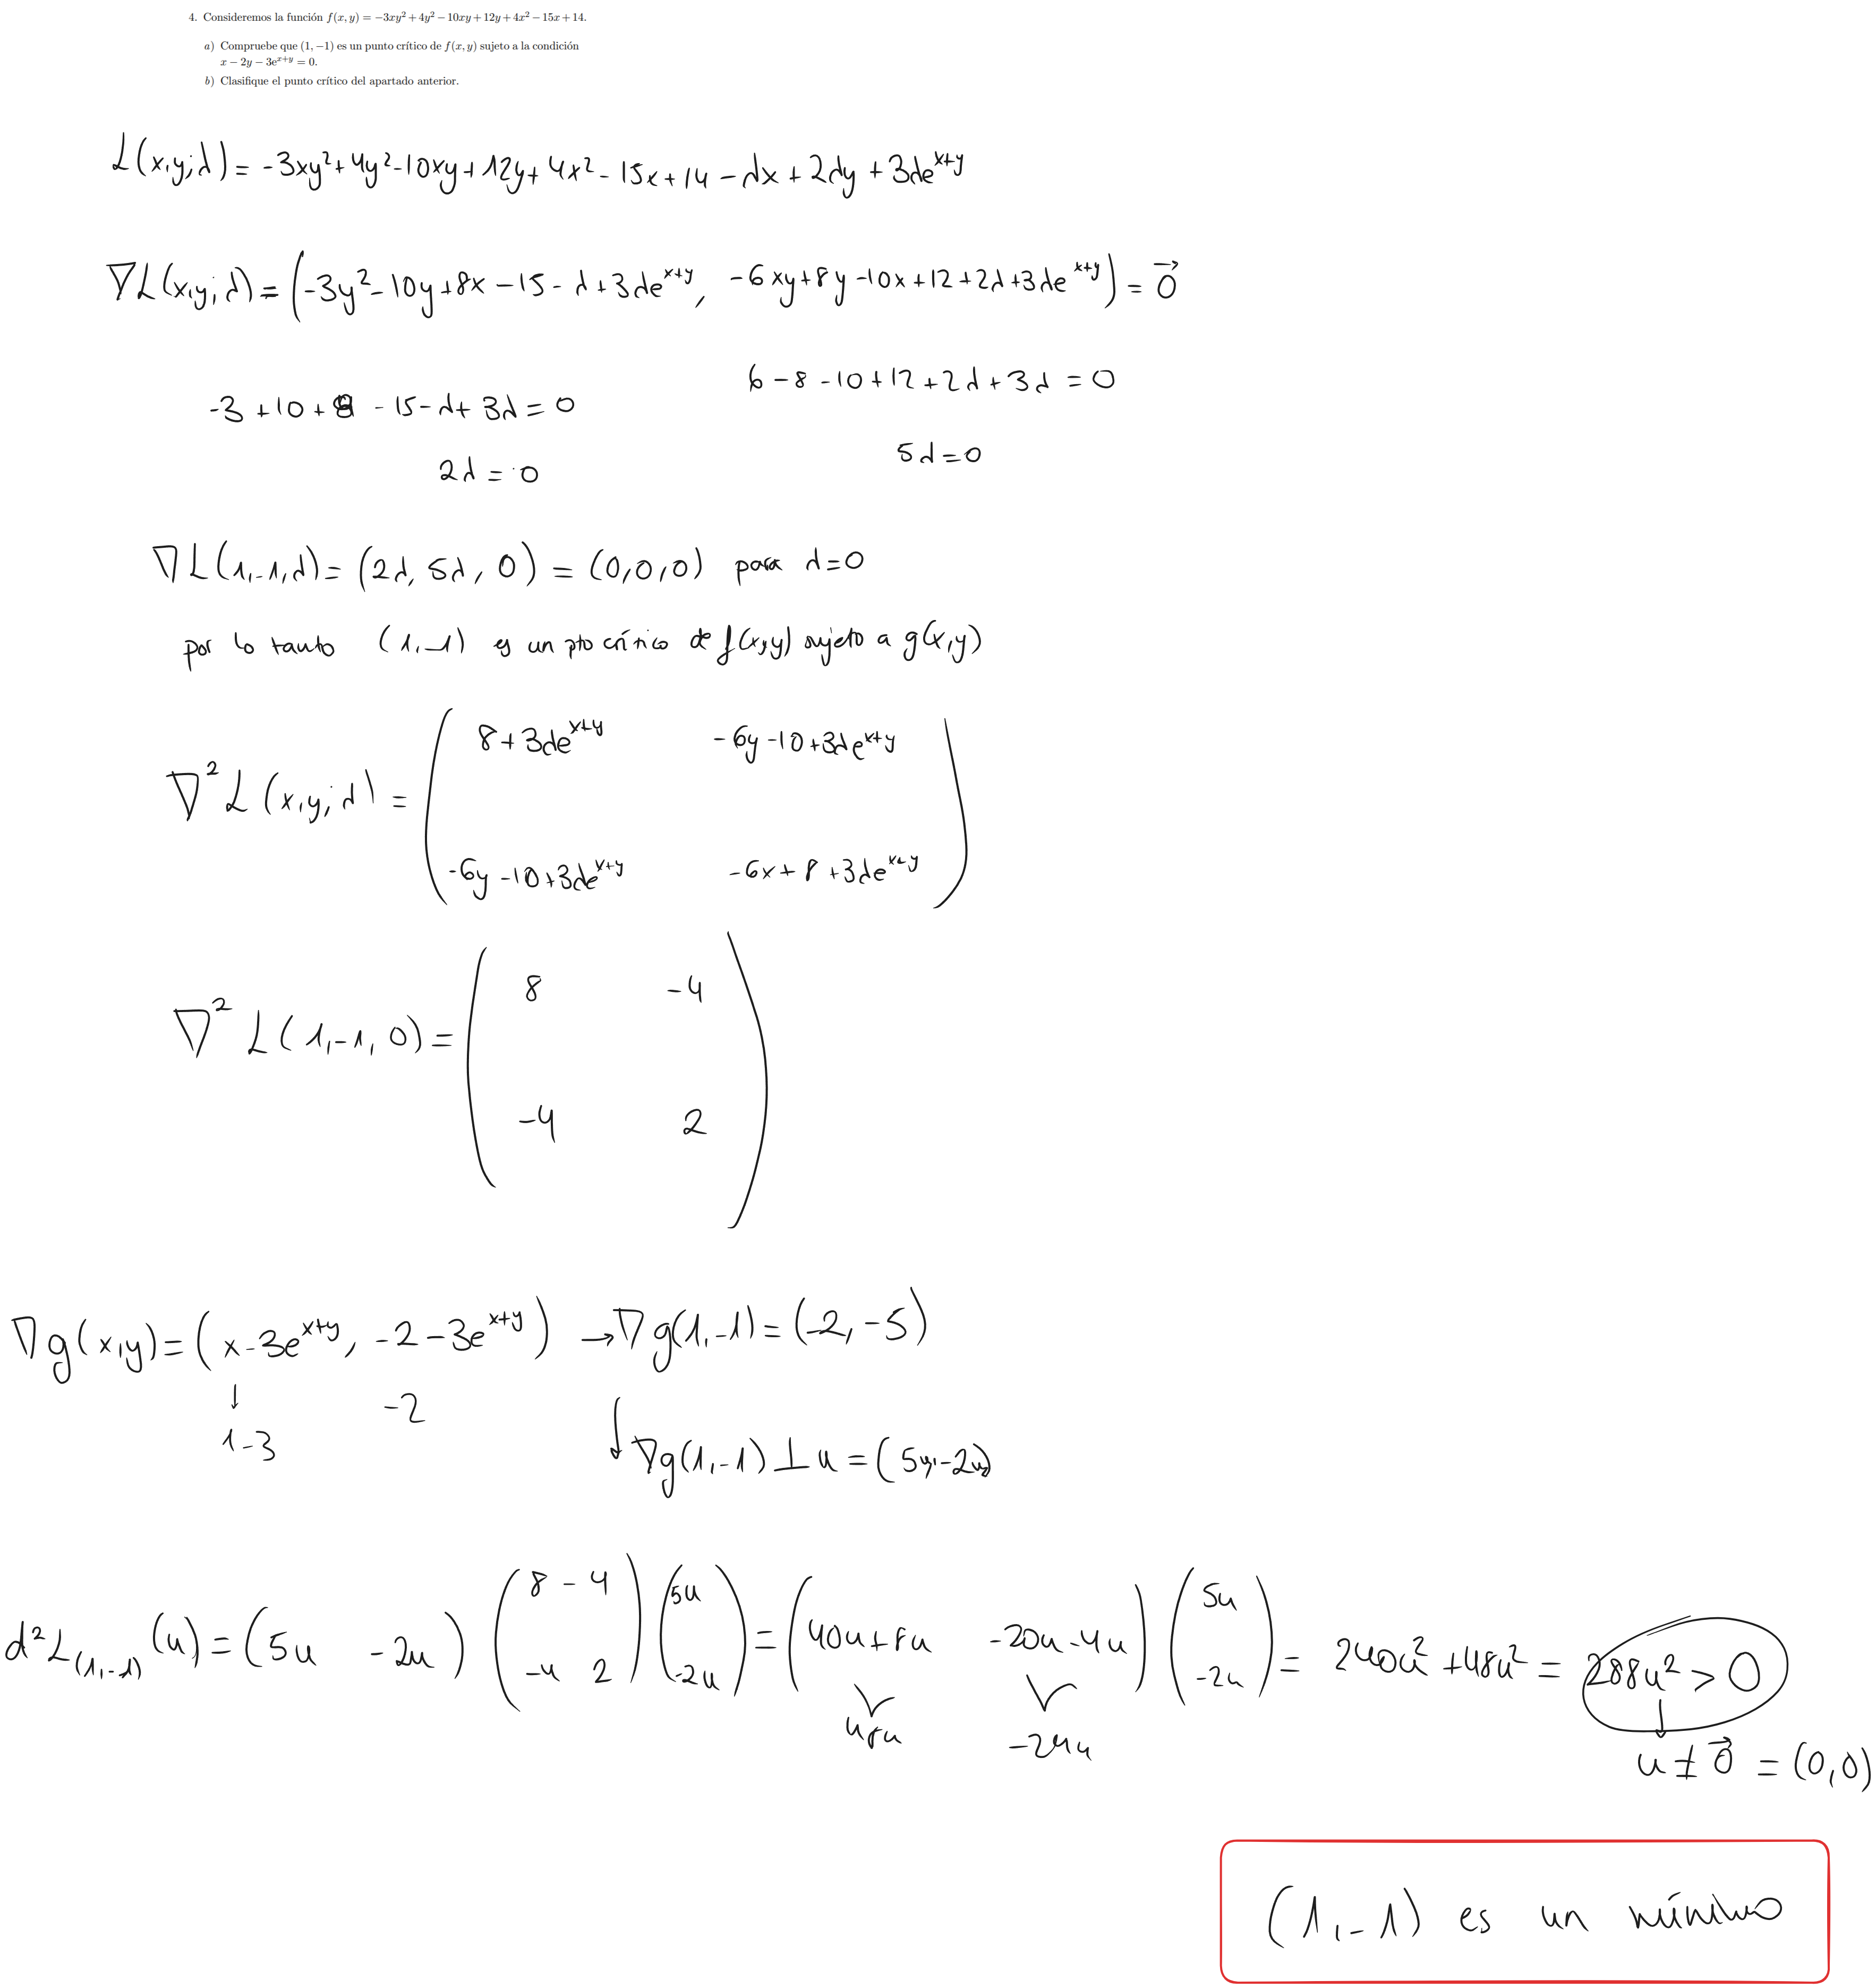 4. Consideremos la función f(x, y) = −3xy² + 4y² − 10xy + 12y + 4x² − 15x + 14.
a) Compruebe que (1, −1) es un punto crítico de f(x, y) sujeto a la condición
x − 2y − 3e^{x+y} = 0.
b) Clasifique el punto crítico del apartado anterior.
L(x,y;λ) = -3xy² + 4y² - 10xy + 12y + 4x² - 15x + 14 - λx + 2λy + 3λe^{x+y}
∇L(x,y;λ) = (-3y² - 10y + 8x - 15 - λ + 3λe^{x+y}, -6xy + 8y - 10x + 12 + 2λ + 3λe^{x+y}) = \vec{0}
6 - 8 - 10 + 12 + 2λ + 3λ = 0
-3 + 10 + 8 - 15 - λ + 3λ = 0
5λ = 0
2λ = 0
∇L(1,-1,λ) = (2λ, 5λ, 0) = (0,0,0) para λ=0
por lo tanto (1,-1) es un pto crítico de f(x,y) sujeto a g(x,y)
8 + 3λe^{x+y} -6y - 10 + 3λe^{x+y}
∇²L(x,y;λ) =
-6y - 10 + 3λe^{x+y} -6x + 8 + 3λe^{x+y}
8 -4
∇²L(1,-1,0) =
-4 2
∇g(x,y) = (x - 3e^{x+y}, -2 - 3e^{x+y}) → ∇g(1,-1) = (-2,-5)
↓ -2
1-3
↓ ∇g(1,-1) ⊥ u = (5u, -2u)
8 -4 5u 5u
d²L_{(1,-1)}(u) = (5u -2u) ( ) ( ) = (40u+8u -20u-4u) ( ) = 240u² + 48u² = 288u² > 0
-4 2 -2u -2u
48u -24u
↓
u ≠ \vec{0} = (0,0)
(1,-1) es un mínimo